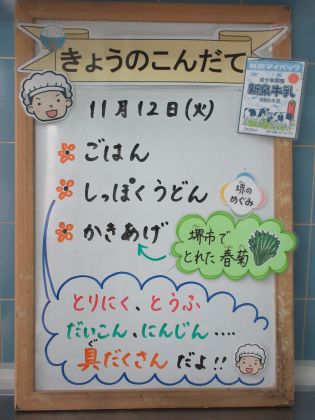 きょうのこんだて
11月12日(火)
ごはん
しっぽくうどん
堺の
めぐみ
かきあげ
堺市で
とれた春菊
とりにく、とうふ
だいこん、にんじん‥‥
ぐ
具だくさん だよ!!
成分無調整
新泉牛乳